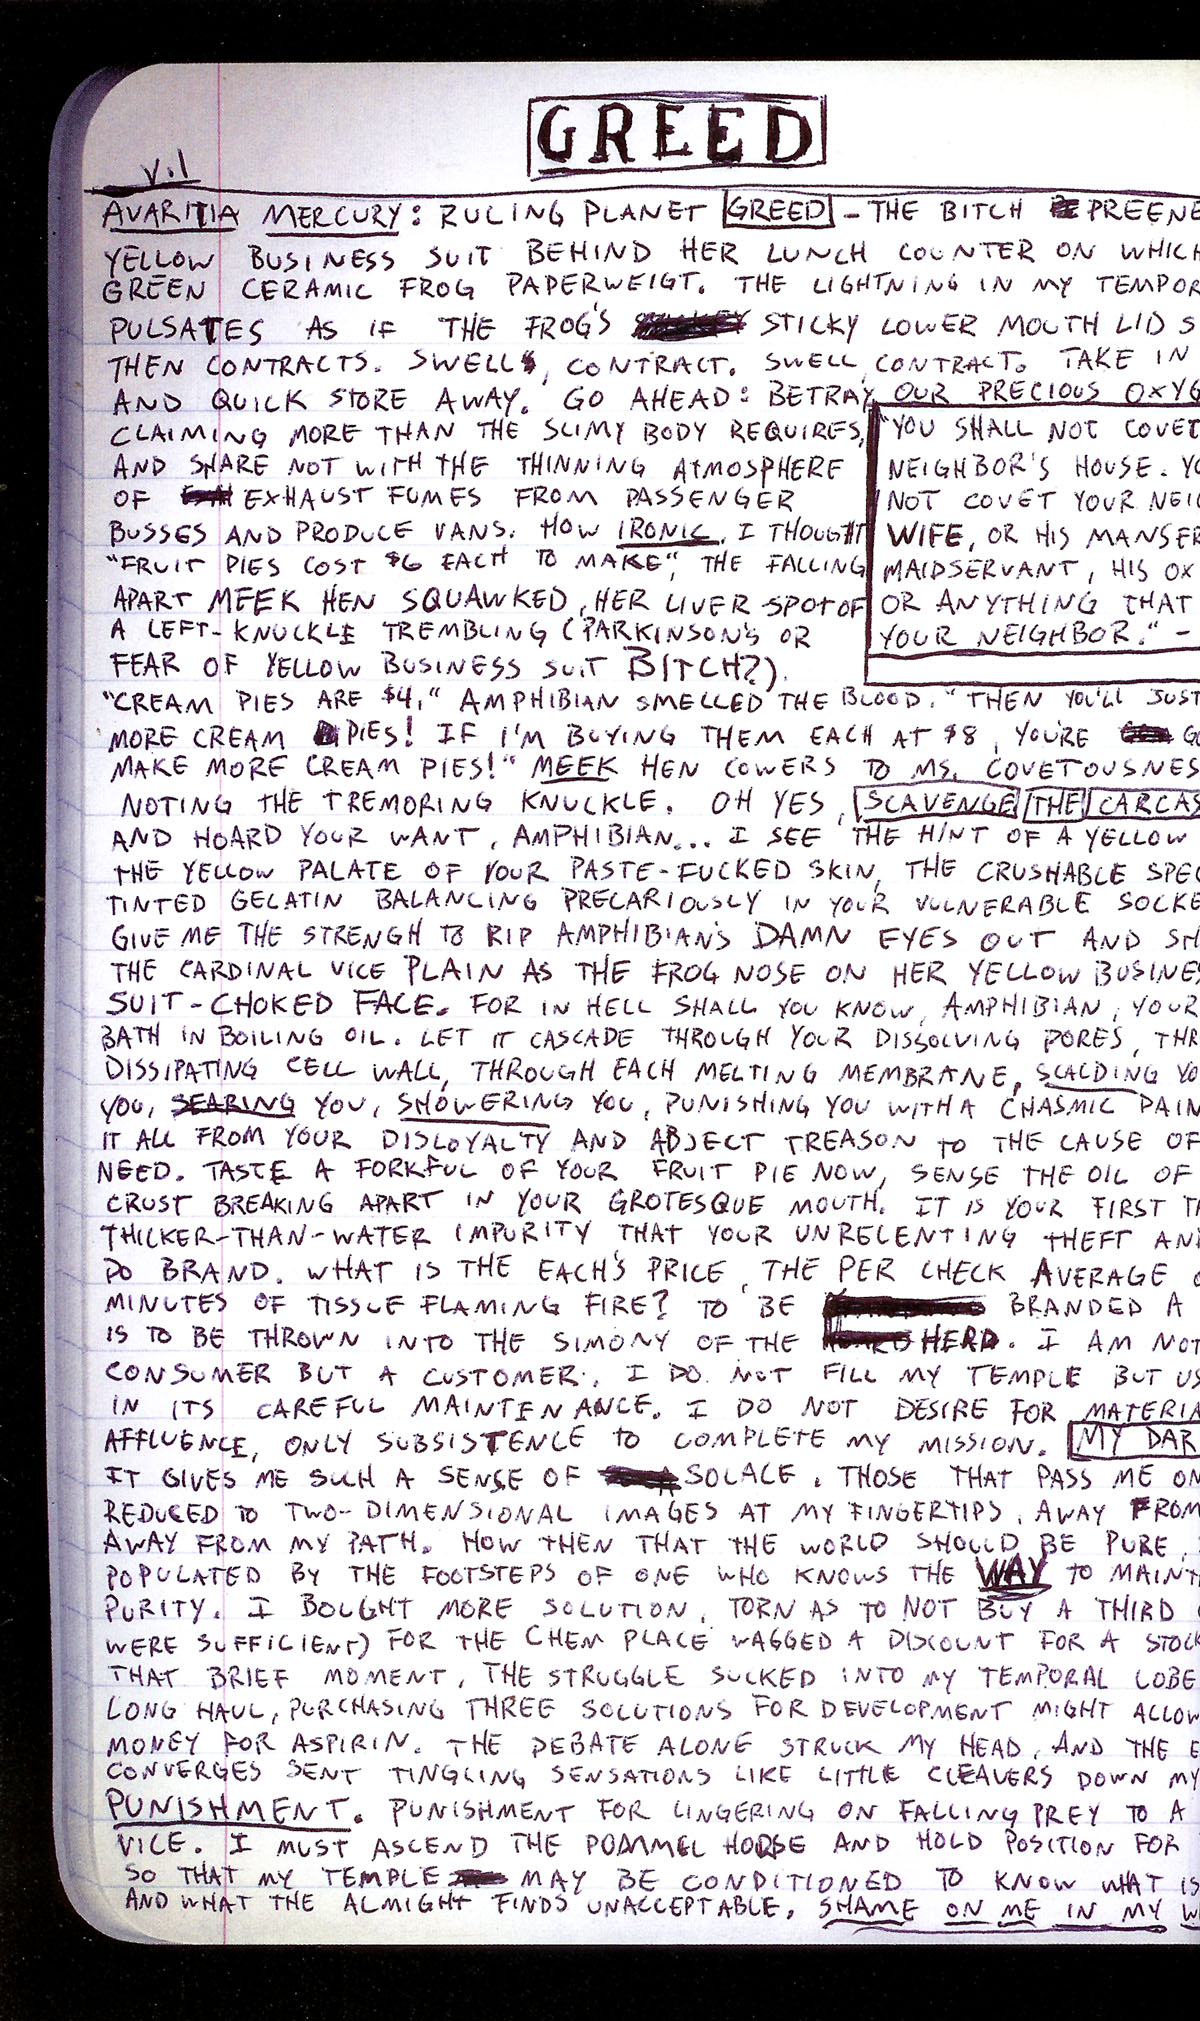 GREED
V.1
AVARITIA MERCURY: RULING PLANET GREED - THE BITCH PREENE
YELLOW BUSINESS SUIT BEHIND HER LUNCH COUNTER ON WHICH
GREEN CERAMIC FROG PAPERWEIGT. THE LIGHTNING IN MY TEMPOR
PULSATES AS IF THE FROG'S STICKY LOWER MOUTH LID S
THEN CONTRACTS. SWELLS, CONTRACT. SWELL, CONTRACT. TAKE IN
AND QUICK STORE AWAY. GO AHEAD: BETRAY OUR PRECIOUS OXYG
CLAIMING MORE THAN THE SLIMY BODY REQUIRES,
AND SHARE NOT WITH THE THINNING ATMOSPHERE
OF EXHAUST FUMES FROM PASSENGER
BUSSES AND PRODUCE VANS. HOW IRONIC. I THOUGHT
"FRUIT PIES COST $6 EACH TO MAKE", THE FALLING
APART MEEK HEN SQUAWKED, HER LIVER-SPOT OF
A LEFT-KNUCKLE TREMBLING (PARKINSON'S OR
FEAR OF YELLOW BUSINESS SUIT BITCH?).
"YOU SHALL NOT COVET
NEIGHBOR'S HOUSE. YO
NOT COVET YOUR NEIG
WIFE, OR HIS MANSER
MAIDSERVANT, HIS OX
OR ANYTHING THAT
YOUR NEIGHBOR." -
"CREAM PIES ARE $4," AMPHIBIAN SMELLED THE BLOOD. "THEN YOU'LL JUST
MORE CREAM PIES! IF I'M BUYING THEM EACH AT $8, YOU'RE GO
MAKE MORE CREAM PIES!" MEEK HEN COWERS TO MS. COVETOUSNES
NOTING THE TREMORING KNUCKLE. OH YES, SCAVENGE THE CARCAS
AND HOARD YOUR WANT, AMPHIBIAN... I SEE THE HINT OF A YELLOW
THE YELLOW PALATE OF YOUR PASTE-FUCKED SKIN, THE CRUSHABLE SPEC
TINTED GELATIN BALANCING PRECARIOUSLY IN YOUR VULNERABLE SOCKE
GIVE ME THE STRENGH TO RIP AMPHIBIAN'S DAMN EYES OUT AND SH
THE CARDINAL VICE PLAIN AS THE FROG NOSE ON HER YELLOW BUSINES
SUIT-CHOKED FACE. FOR IN HELL SHALL YOU KNOW, AMPHIBIAN, YOUR
BATH IN BOILING OIL. LET IT CASCADE THROUGH YOUR DISSOLVING PORES, THR
DISSIPATING CELL WALL, THROUGH EACH MELTING MEMBRANE, SCALDING YO
YOU, SEARING YOU, SHOWERING YOU, PUNISHING YOU WITH A CHASMIC PAIN
IT ALL FROM YOUR DISLOYALTY AND ABJECT TREASON TO THE CAUSE OF
NEED. TASTE A FORKFUL OF YOUR FRUIT PIE NOW, SENSE THE OIL OF
CRUST BREAKING APART IN YOUR GROTESQUE MOUTH. IT IS YOUR FIRST TA
THICKER-THAN-WATER IMPURITY THAT YOUR UNRELENTING THEFT AND
DO BRAND. WHAT IS THE EACH'S PRICE, THE PER CHECK AVERAGE O
MINUTES OF TISSUE FLAMING FIRE? TO BE BRANDED A
IS TO BE THROWN INTO THE SIMONY OF THE HERD. I AM NOT
CONSUMER BUT A CUSTOMER. I DO NOT FILL MY TEMPLE BUT US
IN ITS CAREFUL MAINTENANCE. I DO NOT DESIRE FOR MATERIA
AFFLUENCE, ONLY SUBSISTENCE TO COMPLETE MY MISSION. MY DAR
IT GIVES ME SUCH A SENSE OF SOLACE. THOSE THAT PASS ME ON
REDUCED TO TWO-DIMENSIONAL IMAGES AT MY FINGERTIPS, AWAY FROM
AWAY FROM MY PATH. HOW THEN THAT THE WORLD SHOULD BE PURE,
POPULATED BY THE FOOTSTEPS OF ONE WHO KNOWS THE WAY TO MAINT
PURITY. I BOUGHT MORE SOLUTION, TORN AS TO NOT BUY A THIRD
WERE SUFFICIENT) FOR THE CHEM PLACE WAGGED A DISCOUNT FOR A STOCK
THAT BRIEF MOMENT, THE STRUGGLE SUCKED INTO MY TEMPORAL LOBE
LONG HAUL, PURCHASING THREE SOLUTIONS FOR DEVELOPMENT MIGHT ALLOW
MONEY FOR ASPIRIN. THE DEBATE ALONE STRUCK MY HEAD, AND THE E
CONVERGES SENT TINGLING SENSATIONS LIKE LITTLE CLEAVERS DOWN MY
PUNISHMENT. PUNISHMENT FOR LINGERING ON FALLING PREY TO A
VICE. I MUST ASCEND THE POMMEL HORSE AND HOLD POSITION FOR
SO THAT MY TEMPLE MAY BE CONDITIONED TO KNOW WHAT IS
AND WHAT THE ALMIGHT FINDS UNACCEPTABLE. SHAME ON ME IN MY W